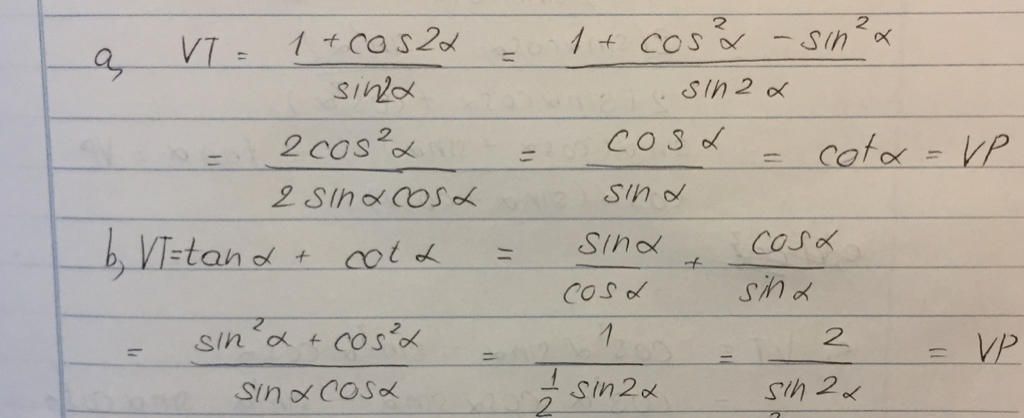 a, VT = (1 + cos2α)/(sin2α) = (1 + cos²α - sin²α)/(sin2α)
= (2cos²α)/(2sinαcosα) = (cosα)/(sinα) = cotα = VP
b, VT = tanα + cotα = (sinα)/(cosα) + (cosα)/(sinα)
= (sin²α + cos²α)/(sinαcosα) = 1/(½ sin2α) = 2/(sin2α) = VP